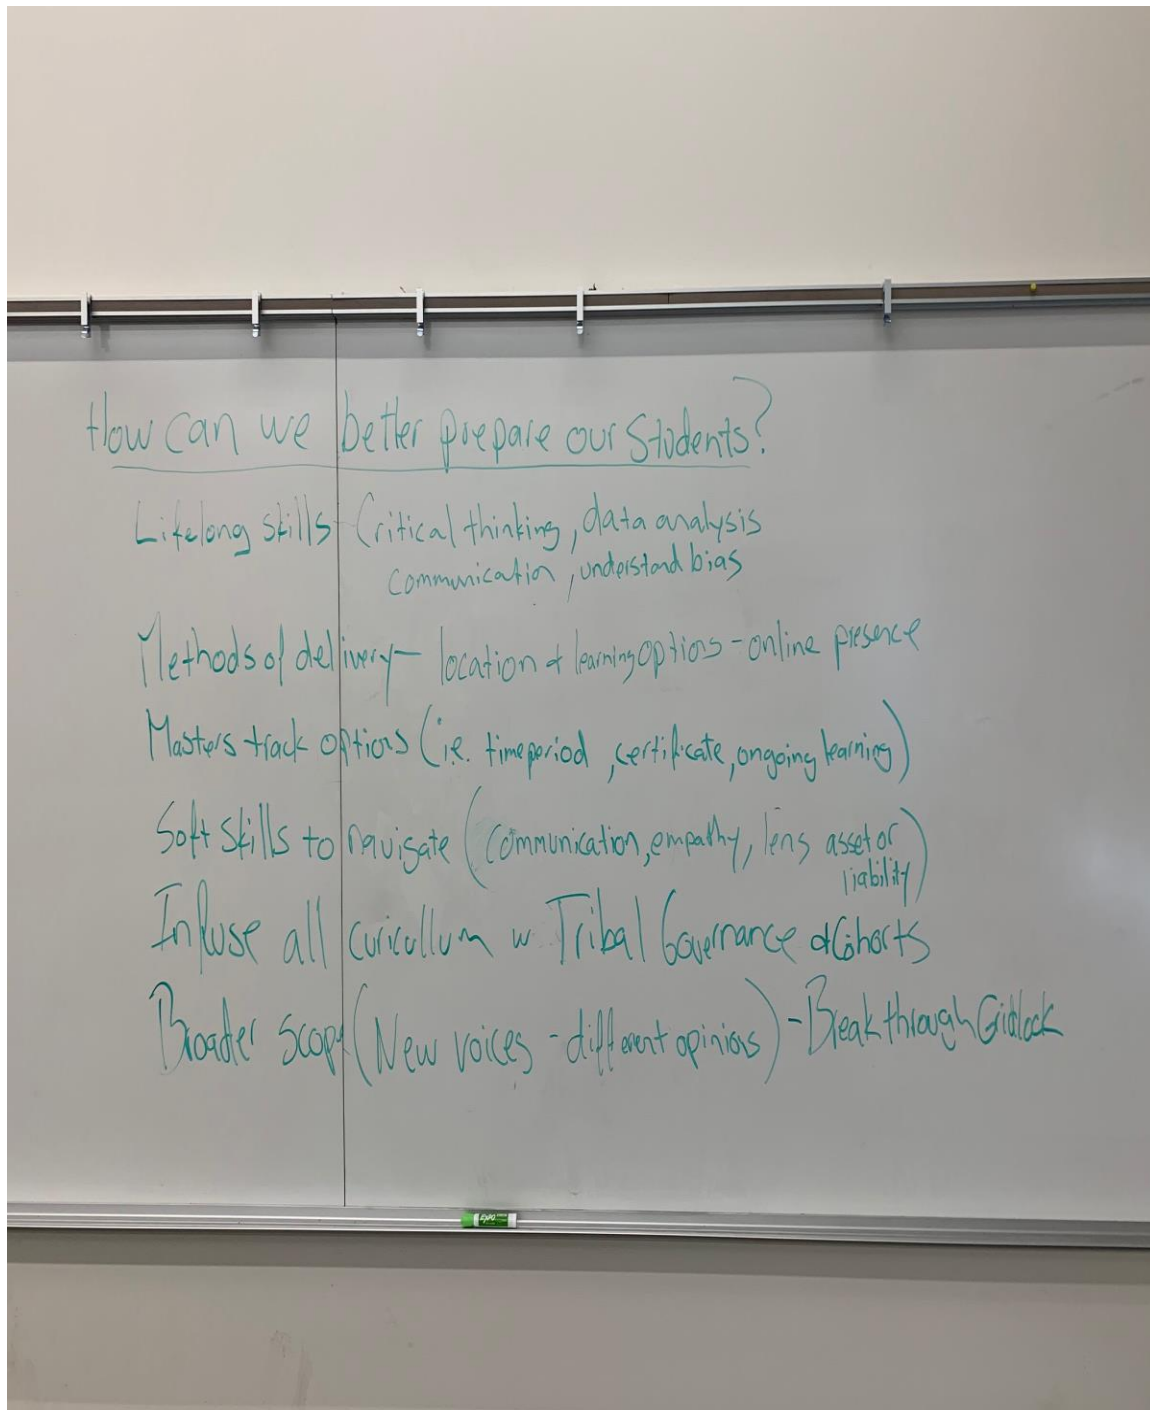 How can we better prepare our Students?
Lifelong skills - Critical thinking, data analysis
communication, understand bias
Methods of delivery - location & learning options - online presence
Masters track options (i.e. time period, certificate, ongoing learning)
Soft Skills to navigate (communication, empathy, lens asset or
liability)
Infuse all curicullum w Tribal Governance & Cohorts
Broader scope (New voices - different opinions) - Break through Gridlock
EXPO